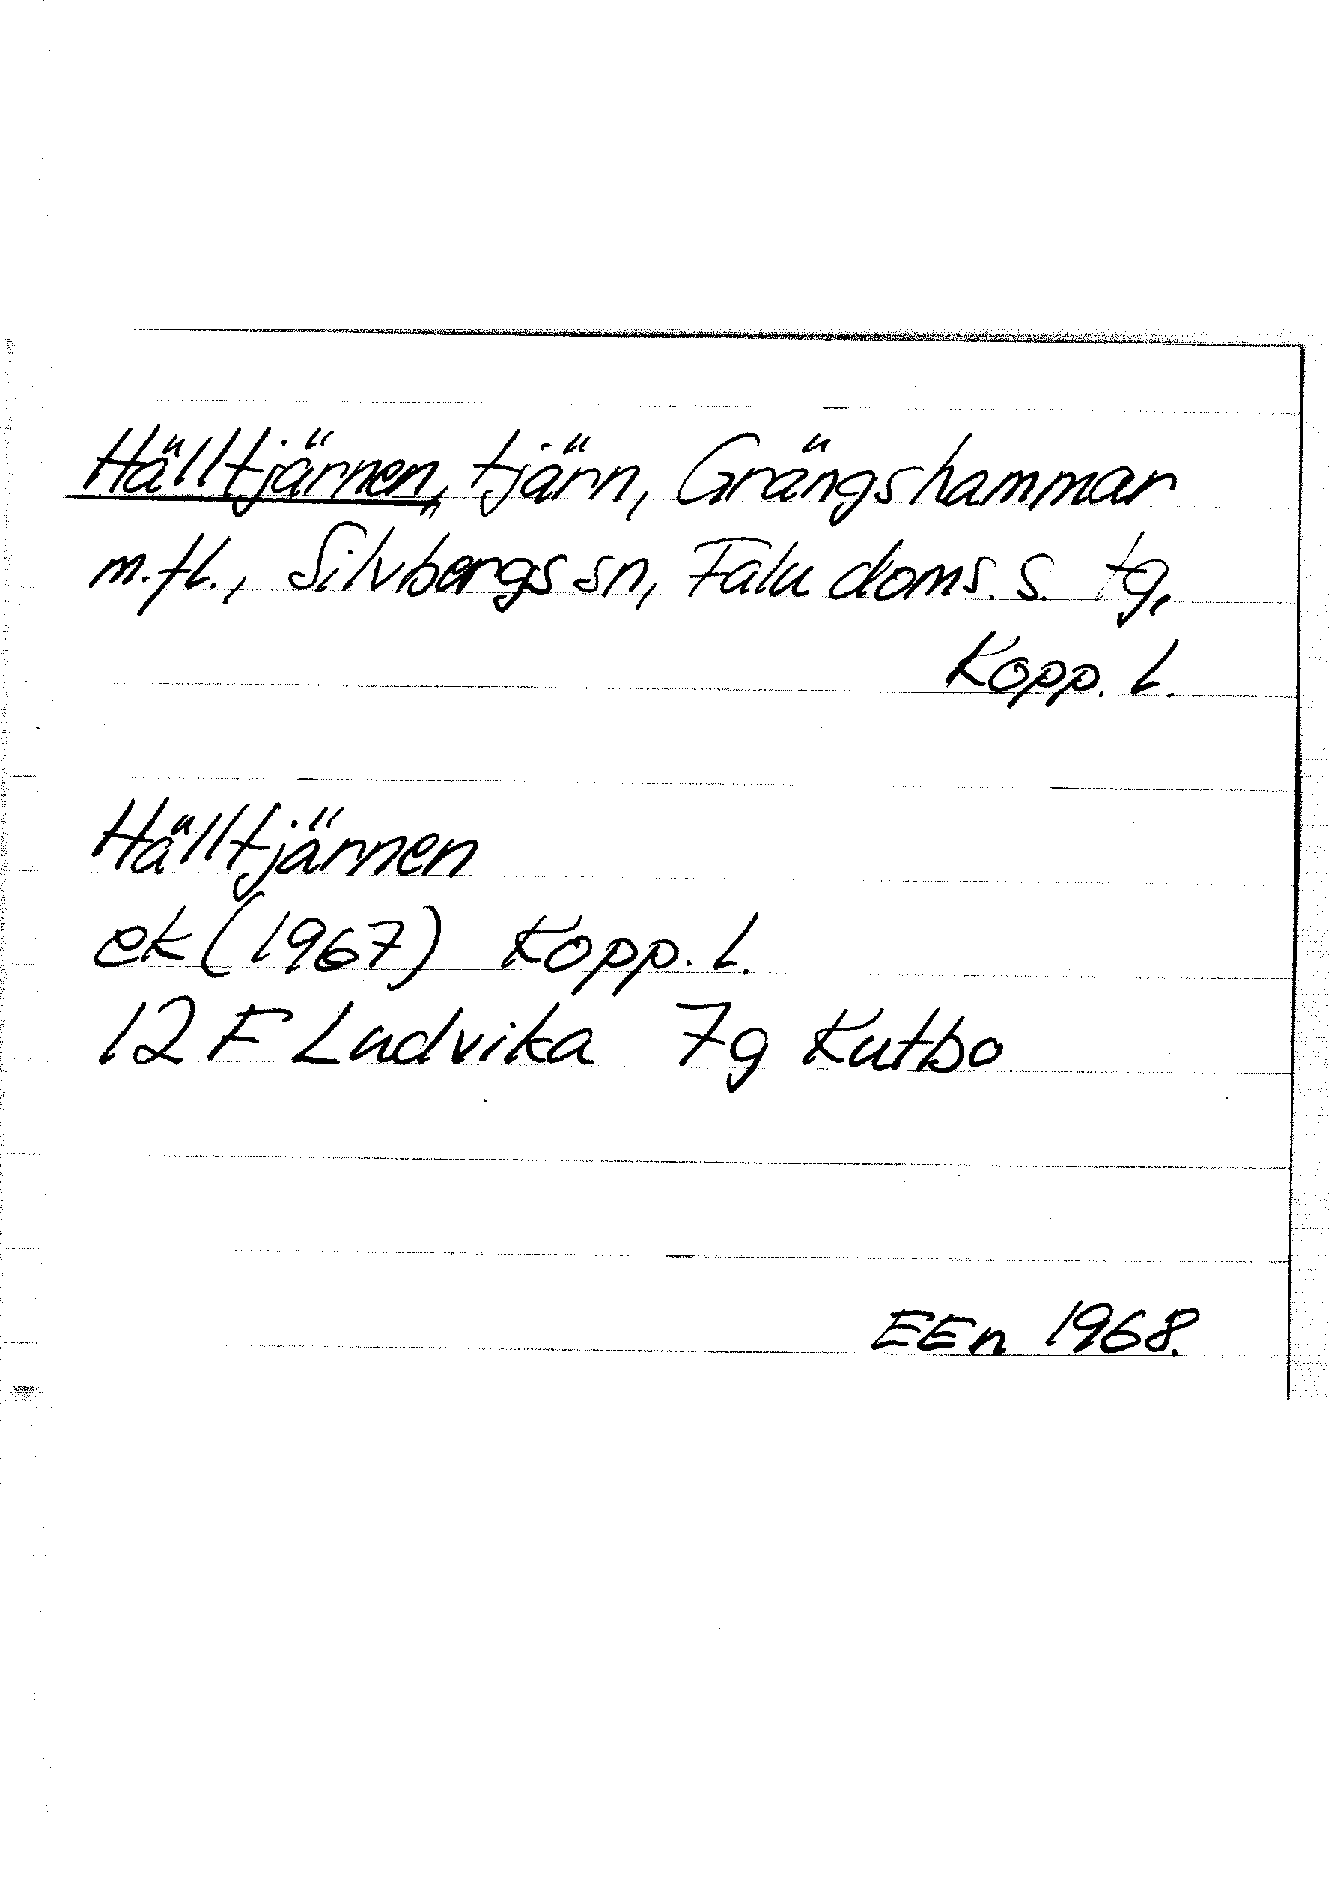 Hälltjärnen, tjärn, Grängshammar
m.fl., Silvbergs sn, Falu doms. s. tg,
Kopp. l.
Hälltjärnen
ek (1967) Kopp. l.
12 F Ludvika 7g Kutbo
EEn 1968.